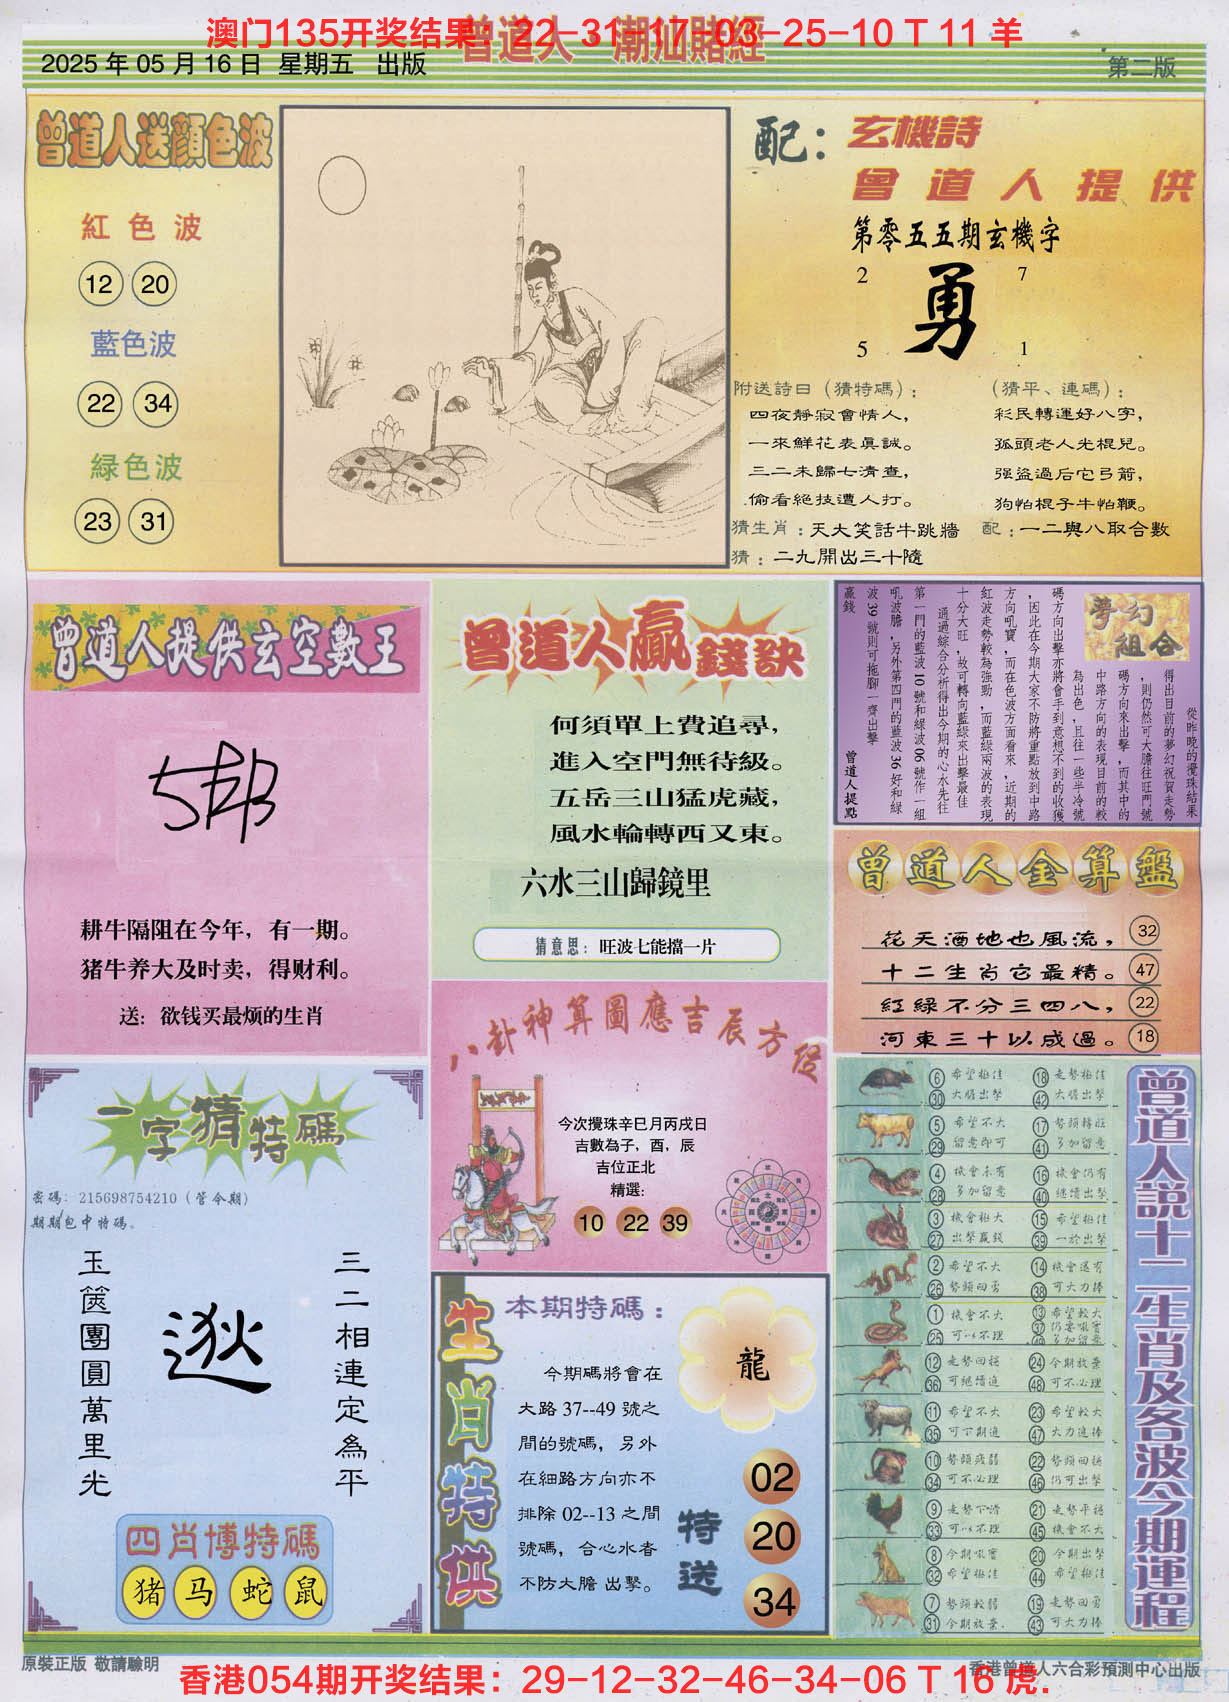 澳门135开奖结果：22-31-17-03-25-10 T 11 羊
曾道人 潮汕賭經
2025 年 05 月 16 日 星期五 出版
第二版
曾道人送顏色波
紅色波
12 20
藍色波
22 34
緑色波
23 31
配：
玄機詩
曾道人提供
第零五五期玄機字
2 7
勇
5 1
附送詩日（猜特碼）：
四夜靜寂會情人，
一來鮮花表真誠。
三二未歸七清查，
偷看絕技遭人打。
（猜平、連碼）：
彩民轉運好八字，
孤頭老人光棍兒。
强盜過后它弓箭，
狗怕棍子牛怕鞭。
猜生肖：天大笑話牛跳牆
配：一二與八取合數
猜：二九開出三十隨
曾道人提供玄空數王
耕牛隔阻在今年，有一期。
猪牛养大及时卖，得财利。
送：欲钱买最烦的生肖
曾道人贏錢訣
何須單上費追尋，
進入空門無待級。
五岳三山猛虎藏，
風水輪轉西又東。
六水三山歸鏡里
猜意思：旺波七能擋一片
夢幻組合
從昨晚的攪珠結果
得出目前的夢幻祝賀走勢
，則仍然可大膽往旺門號
碼方向來出擊，而其中的
中路方向的表現目前的較
為出色，且往一些半冷號
碼方向出擊亦將會手到意想不到的收獲
，因此在今期大家不防將重點放到中路
方向吼寶，而在色波方面看來，近期的
紅波走勢較為強勁，而藍綠兩波的表現
十分大旺，故可轉向藍綠來出擊最佳
通過綜合分析得出今期的心水先往
第一門的藍波 10 號和綠波 06 號作一組
吼波膽，另外第四門的藍波 36 好和綠
波 39 號則可拖腳一齊出擊
贏錢
曾道人提點
曾道人金算盤
花天酒地也風流， 32
十二生肖它最精。 47
紅緑不分三四八， 22
河東三十以成過。 18
八卦神算圖應吉辰方位
今次攪珠辛巳月丙戌日
吉數為子，酉，辰
吉位正北
精選：
10 22 39
一字猜特碼
密碼：215698754210（管今期）
期期包中特碼。
三二相連定為平
逖
玉篋團圓萬里光
四肖博特碼
猪 马 蛇 鼠
生肖特供
本期特碼：
龍
今期碼將會在
大路 37--49 號之
間的號碼，另外
在細路方向亦不
排除 02--13 之間
號碼，合心水者
不防大膽 出擊。
特送
02
20
34
曾道人説十二生肖及各波今期運程
6 希望極佳 18 走勢極佳
30 大膽出擊 42 大膽出擊
5 希望不大 17 勢頭轉旺
29 留意即可 41 多加留意
4 機會未有 16 機會仍有
28 多加留意 40 繼續出擊
3 機會極大 15 希望極佳
27 出擊贏錢 39 一於出擊
2 希望不大 14 機會還有
26 勢頭回勇 38 可大力捧
1 機會不大 13 希望較大
25 可以不理 37 仍要吼實
49 多加留意
12 走勢回穩 24 今期放棄
36 可繼續追 48 可不必理
11 希望不大 23 希望較大
35 可下期追 47 大力追捧
10 勢頭疲弱 22 勢頭回穩
34 可不必理 46 仍可出擊
9 走勢下滑 21 走勢平穩
33 可以不理 45 機會不大
8 今期吼實 20 今期出擊
32 希望極佳 44 希望極佳
7 勢頭較弱 19 走勢回勇
31 今期放棄 43 可大力捧
原裝正版 敬請驗明
香港曾道人六合彩預測中心出版
香港054期开奖结果：29-12-32-46-34-06 T 16 虎.